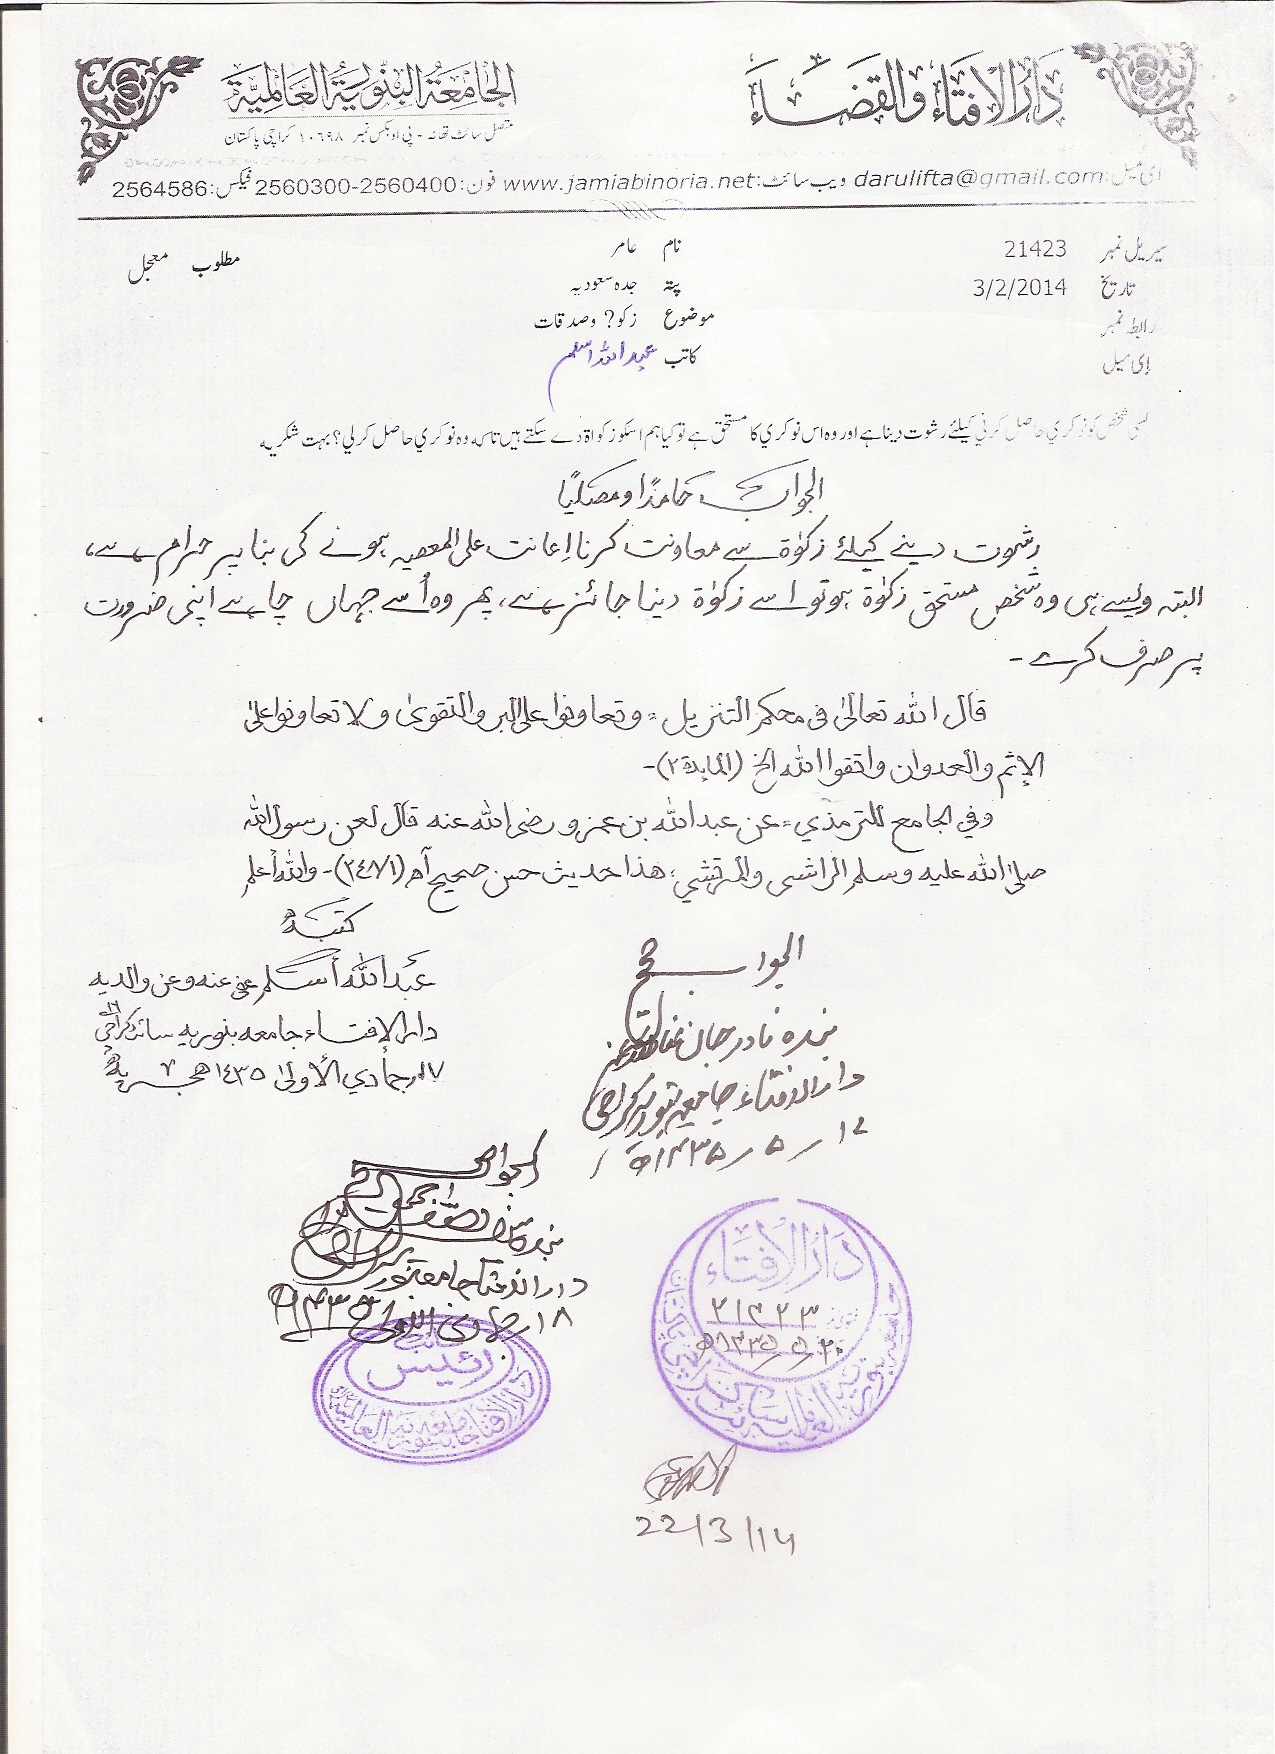 دارالافتاء والقضاء
الجامعة البنورية العالمية
متصل سائٹ تھانہ - پی او بکس نمبر ۱۰۶۹۸ کراچی پاکستان
ای میل: darulifta@gmail.com ویب سائٹ: www.jamiabinoria.net فون: 2560300-2560400 فیکس: 2564586
سیریل نمبر 21423 نام عامر مطلوب معجل
تاریخ 3/2/2014 پتہ جدہ سعودیہ
رابطہ نمبر موضوع زکو? وصدقات
ای میل کاتب عبداللہ اسلم
کسی شخص کو نوکري حاصل کرني کیلئے رشوت دینا ہے اور وہ اس نوکري کا مستحق ہے تو کیا ہم اسکو زکواۃ دے سکتے ہیں تاسکہ وہ نوکري حاصل کرلي؟ بہت شکریہ
الجواب حامدًا ومصلیًا
رشوت دینے کیلئے زکوٰۃ سے معاونت کرنا اِعانت علی المعصیہ ہونے کی بنا پر حرام ہے،
البتہ ویسے ہی وہ شخص مستحق زکوٰۃ ہو تو اسے زکوٰۃ دینا جائز ہے، پھر وہ اُسے جہاں چاہے اپنی ضرورت
پر صرف کرے -
قال اللہ تعالیٰ فی محکم التنزیل: وتعاونوا علی البر والتقویٰ ولا تعاونوا علیٰ
الإثم والعدوان واتقوا اللہ الخ (المایدۃ ۲)-
وفي الجامع للترمذي: عن عبداللہ بن عمرو رضی اللہ عنہ قال لعن رسول اللہ
صلی اللہ علیہ وسلم الراشی والمرتشي، هذا حدیث حسن صحیح اھ (۱/۲٤۸)- واللہ أعلم
کتبہ
عبداللہ أسلم عفی عنہ وعن والدیہ
دارالافتاء جامعہ بنوریہ سائٹ کراچی
۱۷/جمادي الأولیٰ ۱٤۳۵ هجریہ
الجواب صحیح
بندہ نادر جان
دارالافتاء جامعہ بنوریہ کراچی
۱۷ / ۵ / ۱۴۳۵ھ
الجواب صحیح
بندہ
دارالافتاء جامعہ بنوریہ
۱۸/جمادی الاولی ۱۴۳۵ھ
دارالافتاء
۲۱۴۲۳
۲۰ / ۵ / ۱۴۳۵ھ
رئیس
دارالافتاء جامعہ بنوریہ العالمیہ
22/3/14